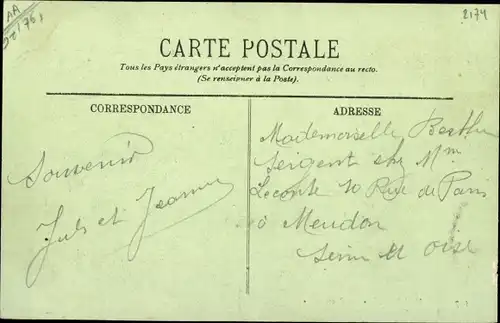 AA
2174
CARTE POSTALE
Tous les Pays étrangers n'acceptent pas la Correspondance au recto.
(Se renseigner à la Poste).
CORRESPONDANCE
Souvenir
Jules et Jeanne
ADRESSE
Mademoiselle Berthe
Sergent chez Mme
Leconte 10 Rue de Paris
à Meudon
Seine et Oise